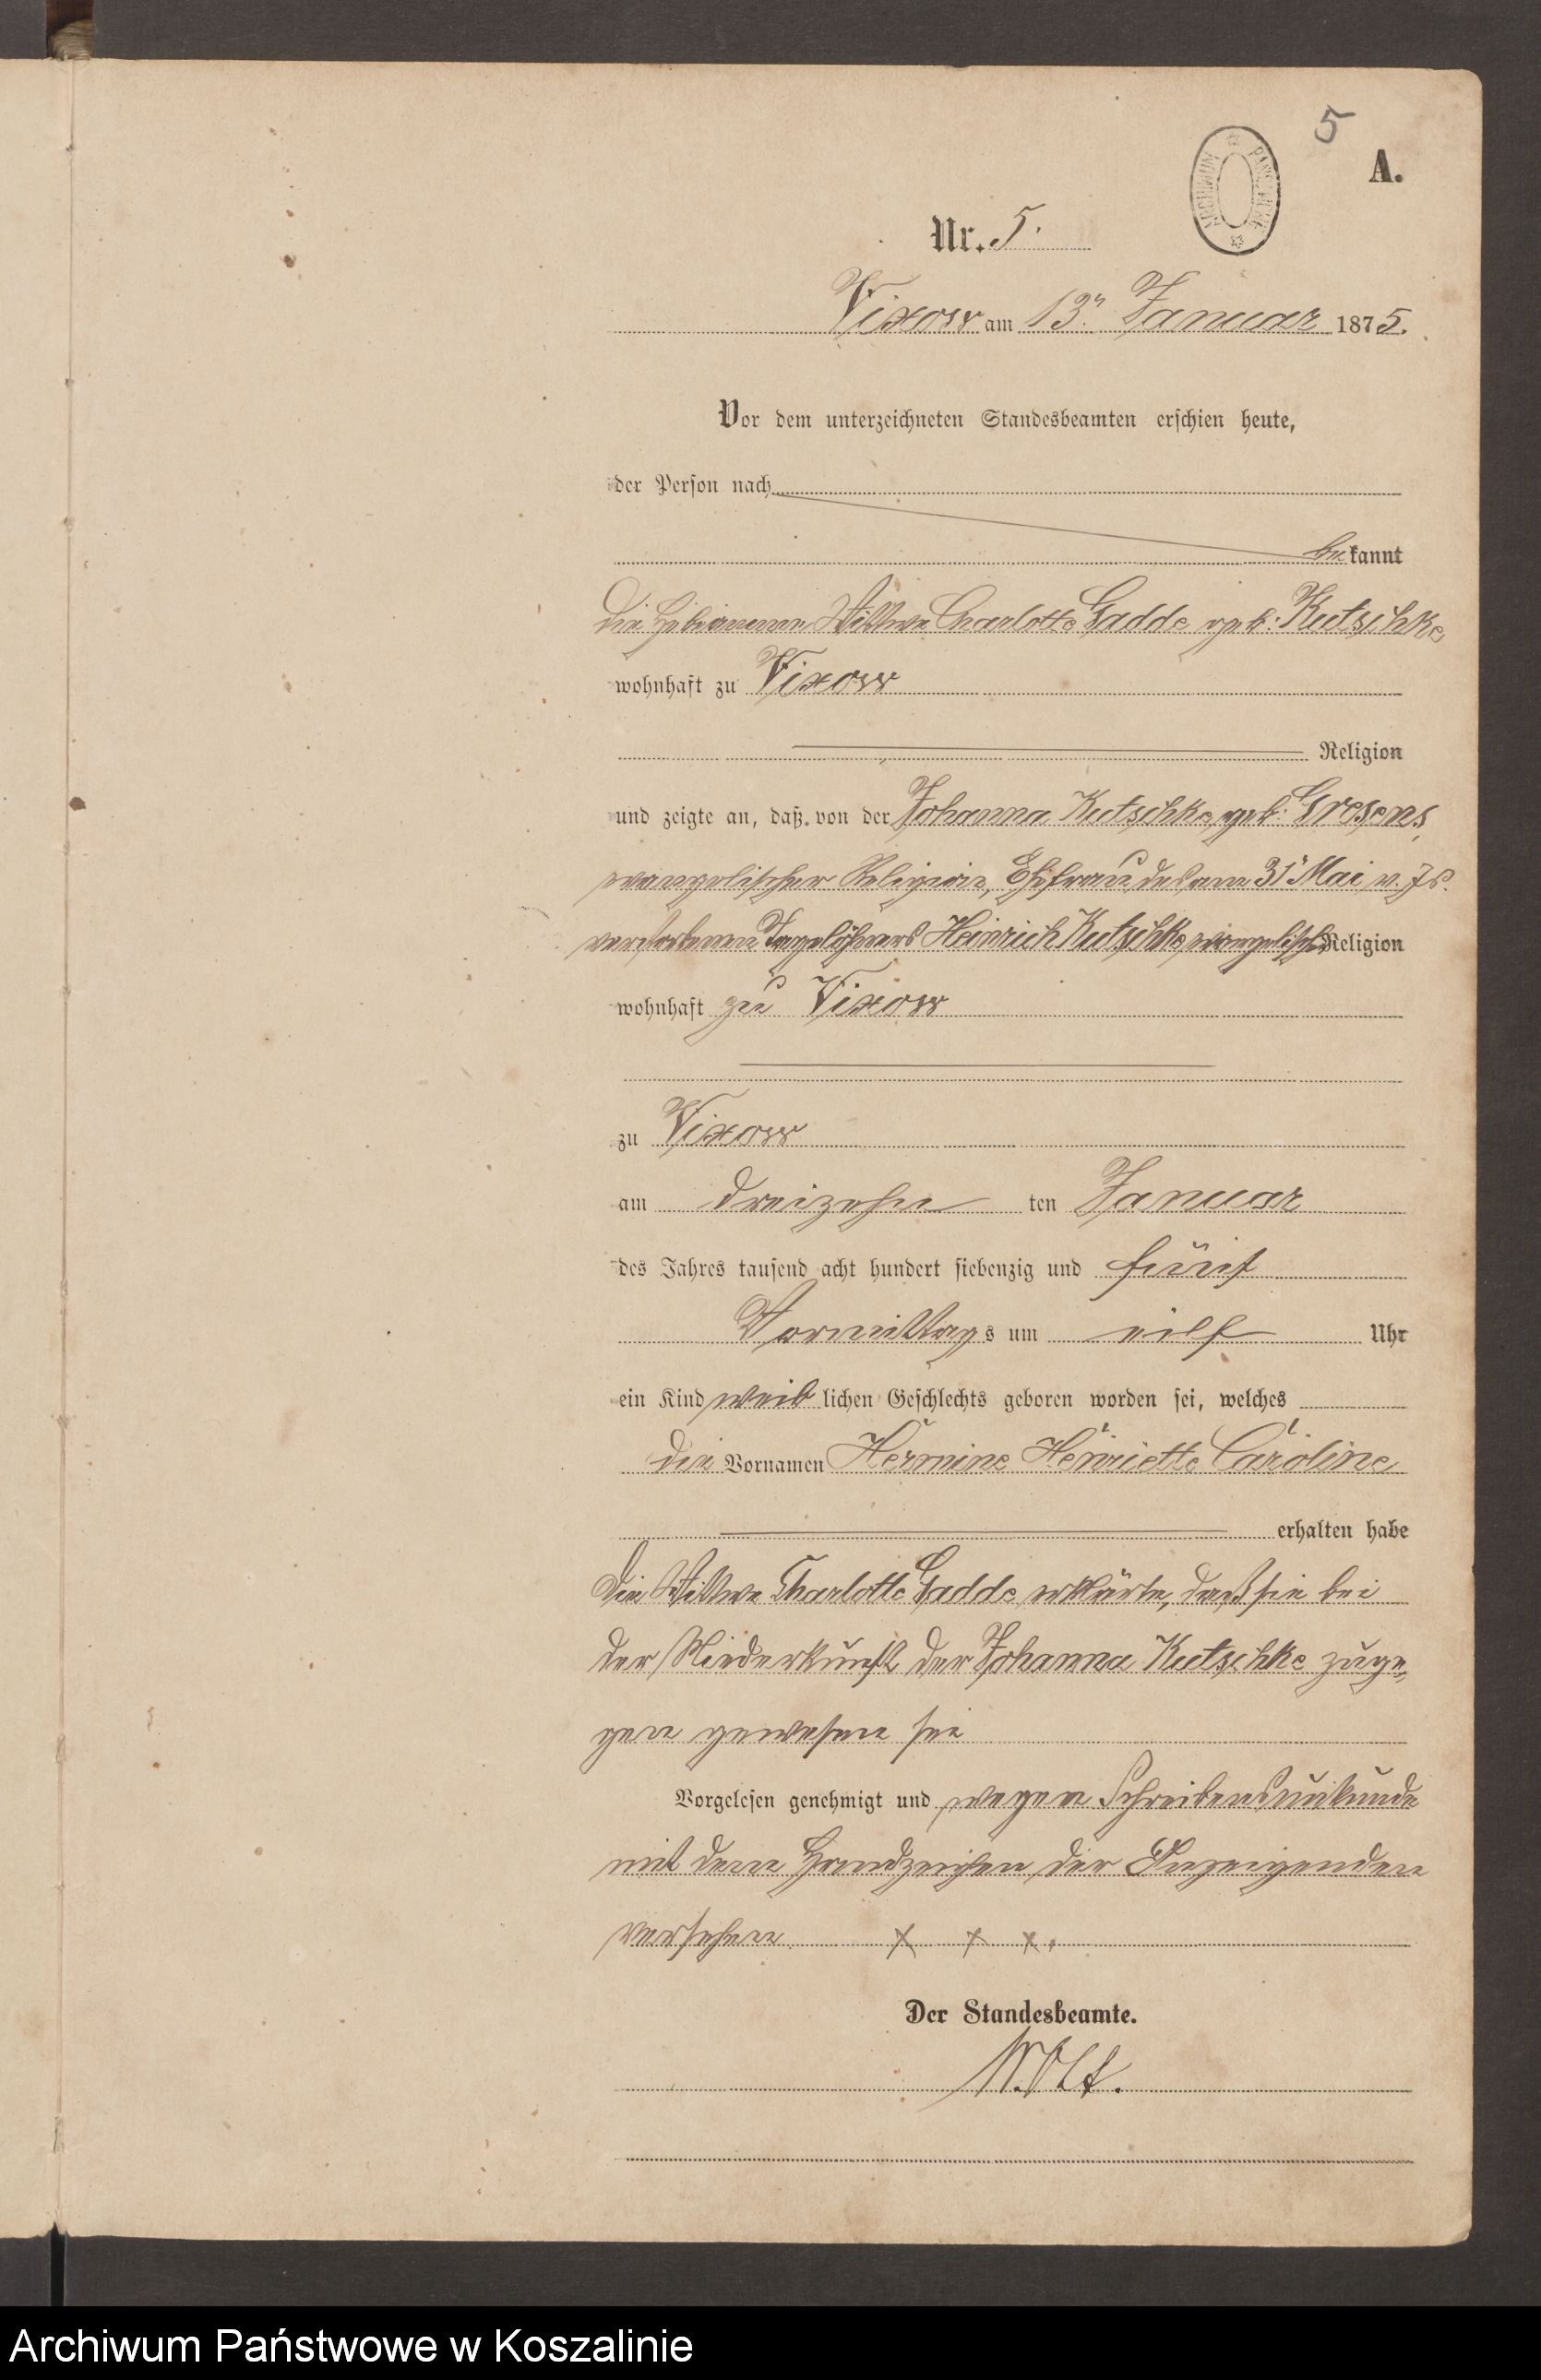 5
A.
ARCHIWUM PAŃSTWOWE
Nr. 5.
Vixow am 13n Januar 1875.
Vor dem unterzeichneten Standesbeamten erschien heute,
der Person nach
bekannt
die Hebamme Wittwe Charlotte Gadde geb. Kutschke
wohnhaft zu Vixow
Religion
und zeigte an, daß von der Johanna Kutschke geb. Grosens
evangelischer Religion, Ehefrau des am 31n Mai v. Js.
verstorbenen Tagelöhners Heinrich Kutschke, evangelischer Religion
wohnhaft zu Vixow
zu Vixow
am dreizehn ten Januar
des Jahres tausend acht hundert siebenzig und fünf
Vormittags um eilf Uhr
ein Kind weiblichen Geschlechts geboren worden sei, welches
die Vornamen Hermine Henriette Caroline
erhalten habe
Die Wittwe Charlotte Gadde erklärte, daß sie bei
der Niederkunft der Johanna Kutschke zuge-
gen gewesen sei
Vorgelesen genehmigt und wegen Schreibensunkunde
mit dem Handzeichen der Anzeigenden
versehen x x x.
Der Standesbeamte.
Archiwum Państwowe w Koszalinie